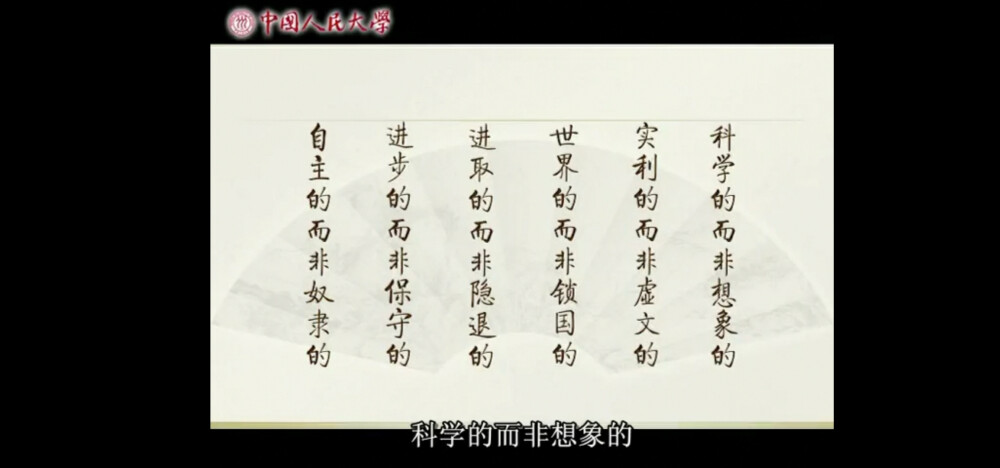 中国人民大学
自主的而非奴隶的
进步的而非保守的
进取的而非隐退的
世界的而非锁国的
实利的而非虚文的
科学的而非想象的
科学的而非想象的